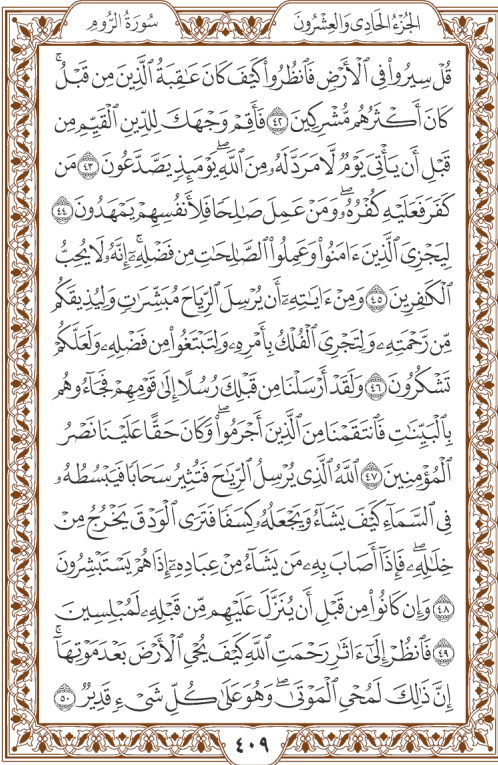 الجزء الحادي والعشرون
سورة الروم
قُلْ سِيرُوا۟ فِى ٱلْأَرْضِ فَٱنظُرُوا۟ كَيْفَ كَانَ عَـٰقِبَةُ ٱلَّذِينَ مِن قَبْلُ ۚ
كَانَ أَكْثَرُهُم مُّشْرِكِينَ ٤٢ فَأَقِمْ وَجْهَكَ لِلدِّينِ ٱلْقَيِّمِ مِن
قَبْلِ أَن يَأْتِىَ يَوْمٌ لَّا مَرَدَّ لَهُۥ مِنَ ٱللَّهِ ۖ يَوْمَئِذٍ يَصَّدَّعُونَ ٤٣ مَن
كَفَرَ فَعَلَيْهِ كُفْرُهُۥ ۖ وَمَنْ عَمِلَ صَـٰلِحًا فَلِأَنفُسِهِمْ يَمْهَدُونَ ٤٤
لِيَجْزِىَ ٱلَّذِينَ ءَامَنُوا۟ وَعَمِلُوا۟ ٱلصَّـٰلِحَـٰتِ مِن فَضْلِهِۦٓ ۚ إِنَّهُۥ لَا يُحِبُّ
ٱلْكَـٰفِرِينَ ٤٥ وَمِنْ ءَايَـٰتِهِۦٓ أَن يُرْسِلَ ٱلرِّيَاحَ مُبَشِّرَٰتٍ وَلِيُذِيقَكُم
مِّن رَّحْمَتِهِۦ وَلِتَجْرِىَ ٱلْفُلْكُ بِأَمْرِهِۦ وَلِتَبْتَغُوا۟ مِن فَضْلِهِۦ وَلَعَلَّكُمْ
تَشْكُرُونَ ٤٦ وَلَقَدْ أَرْسَلْنَا مِن قَبْلِكَ رُسُلًا إِلَىٰ قَوْمِهِمْ فَجَآءُوهُم
بِٱلْبَيِّنَـٰتِ فَٱنتَقَمْنَا مِنَ ٱلَّذِينَ أَجْرَمُوا۟ ۖ وَكَانَ حَقًّا عَلَيْنَا نَصْرُ
ٱلْمُؤْمِنِينَ ٤٧ ٱللَّهُ ٱلَّذِى يُرْسِلُ ٱلرِّيَـٰحَ فَتُثِيرُ سَحَابًا فَيَبْسُطُهُۥ
فِى ٱلسَّمَآءِ كَيْفَ يَشَآءُ وَيَجْعَلُهُۥ كِسَفًا فَتَرَى ٱلْوَدْقَ يَخْرُجُ مِنْ
خِلَـٰلِهِۦ ۖ فَإِذَآ أَصَابَ بِهِۦ مَن يَشَآءُ مِنْ عِبَادِهِۦٓ إِذَا هُمْ يَسْتَبْشِرُونَ
٤٨ وَإِن كَانُوا۟ مِن قَبْلِ أَن يُنَزَّلَ عَلَيْهِم مِّن قَبْلِهِۦ لَمُبْلِسِينَ
٤٩ فَٱنظُرْ إِلَىٰٓ ءَاثَـٰرِ رَحْمَتِ ٱللَّهِ كَيْفَ يُحْىِ ٱلْأَرْضَ بَعْدَ مَوْتِهَآ ۚ
إِنَّ ذَٰلِكَ لَمُحْىِ ٱلْمَوْتَىٰ ۖ وَهُوَ عَلَىٰ كُلِّ شَىْءٍ قَدِيرٌ ٥٠
٤٠٩